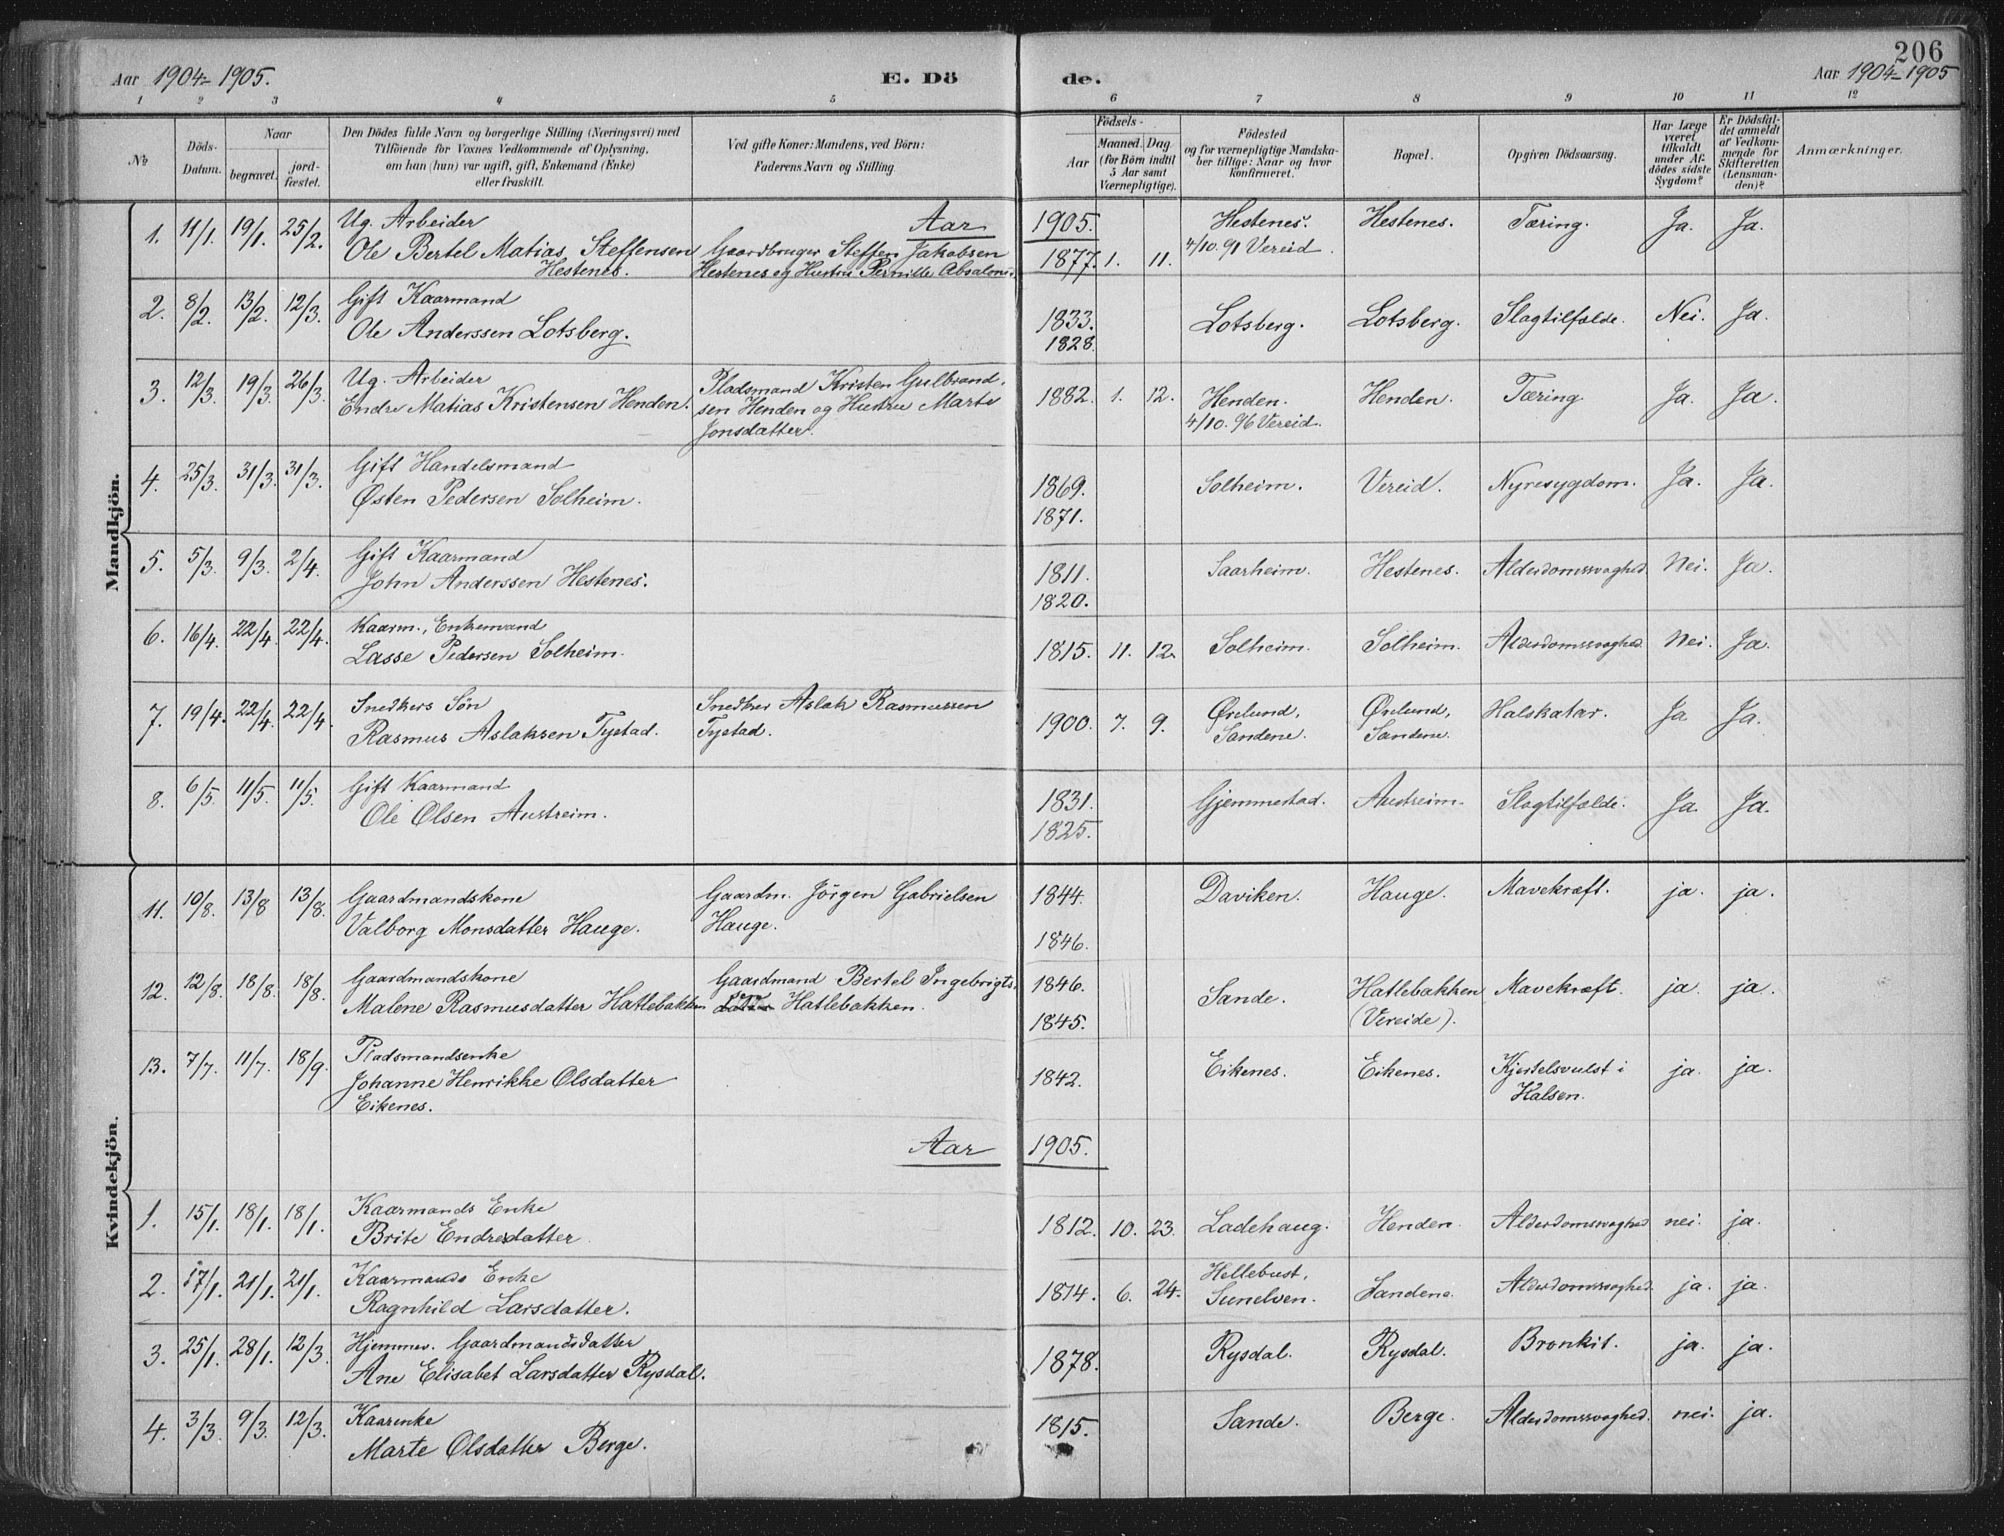 206
Aar 1904-1905. E. Dö de. Aar 1904-1905
1 2 3 4 5 6 7 8 9 10 11 12
No
Döds-Datum.
Naar
begravet.
jord-fæstet.
Den Dödes fulde Navn og borgerlige Stilling (Næringsvei) med
Tilföiende for Voxnes Vedkommende af Oplysning,
om han (hun) var ugift, gift, Enkemand (Enke)
eller fraskilt.
Ved gifte Koner: Mandens, ved Börn:
Faderens Navn og Stilling.
Födsels-
Aar
Maaned. Dag.
(for Börn indtil
5 Aar samt
Værnepligtige).
Födested
og for værnepligtige Mandska-
ber tillige: Naar og hvor
konfirmeret.
Bopæl.
Opgiven Dödsaarsag.
Har Læge
været
tilkaldt
under Af-
dödes sidste
Sygdom?
Er Dödsfal-
det anmeldt
af Vedkom-
mende for
Skifteretten
(Lensman-
den)?
Anmærkninger.
Mandkjön.
Aar 1905.
1. 11/1. 19/1. 25/2. Ug. Arbeider
Ole Bertel Matias Steffensen
Hestenes.
Gaardbruger Steffen Jakobsen
Hestenes og Hustru Pernille Absalons.
1877. 1. 11. Hestenes.
4/10. 91 Vereid. Hestenes. Tæring. Ja. Ja.
2. 8/2. 13/2. 12/3. Gift Kaarmand
Ole Anderssen Lotsberg.
1833.
1828. Lotsberg. Lotsberg. Slagtilfælde. Nei. Ja.
3. 12/3. 19/3. 26/3. Ug. Arbeider
Endre Matias Kristensen Henden.
Pladsmand Kristen Gulbrand-
sen Henden og Hustru Marte
Jonsdatter.
1882. 1. 12. Henden.
4/10. 96 Vereid. Henden. Tæring. Ja. Ja.
4. 25/3. 31/3. 31/3. Gift Handelsmand
Østen Pedersen Solheim.
1869.
1871. Solheim. Vereid. Nyresygdom. Ja. Ja.
5. 5/3. 9/3. 2/4. Gift Kaarmand
John Anderssen Hestenes.
1811.
1820. Saarheim. Hestenes. Alderdomssvaghed. Nei. Ja.
6. 16/4. 22/4. 22/4. Kaarm., Enkemand
Lasse Pedersen Solheim.
1815. 11. 12. Solheim. Solheim. Alderdomssvaghed. Nei. Ja.
7. 19/4. 22/4. 22/4. Snedkers Søn
Rasmus Aslaksen Tystad.
Snedker Aslak Rasmussen
Tystad.
1900. 7. 9. Ørelund,
Sandene. Ørelund,
Sandene. Halskatar. Ja Ja.
8. 6/5. 11/5. 11/5. Gift Kaarmand
Ole Olsen Austreim.
1831.
1825. Gjemmestad. Austreim. Slagtilfælde. Ja Ja.
Kvindekjön.
11. 10/8. 13/8 13/8. Gaardmandskone
Valborg Monsdatter Hauge.
Gaardm. Jörgen Gabrielsen
Hauge.
1844.
1846. Daviken. Hauge. Mavekræft. ja. ja.
12. 12/8. 18/8. 18/8. Gaardmandskone
Malene Rasmusdatter Hatlebakken
Gaardmand Bertel Ingebrigts.
Hatlebakken.
1846.
1845. Sande. Hatlebakken
(Vereide). Mavekræft. ja. ja.
13. 7/7. 11/7. 18/9. Pladsmandsenke
Johanne Henrikke Olsdatter
Eikenes.
1842. Eikenes. Eikenes. Kjertelsvulst i
Halsen. ja. ja.
Aar 1905.
1. 15/1. 18/1. 18/1. Kaarmands Enke
Brite Endresdatter.
1812. 10. 23. Ladehaug. Henden. Alderdomssvaghed nei. ja.
2. 17/1. 21/1. 21/1. Kaarmands Enke
Ragnhild Larsdatter.
1814. 6. 24. Hellebust,
Sunelven. Sandene. Alderdomssvaghed. ja. ja.
3. 25/1. 28/1. 12/3. Hjemmev. Gaardmandsdatter
Ane Elisabet Larsdatter Rysdal.
1878. Rysdal. Rysdal. Bronkit. ja. ja.
4. 3/3. 9/3. 12/3. Kaarenke
Marte Olsdatter Berge.
1815. Sande. Berge. Alderdomssvaghed. nei. ja.